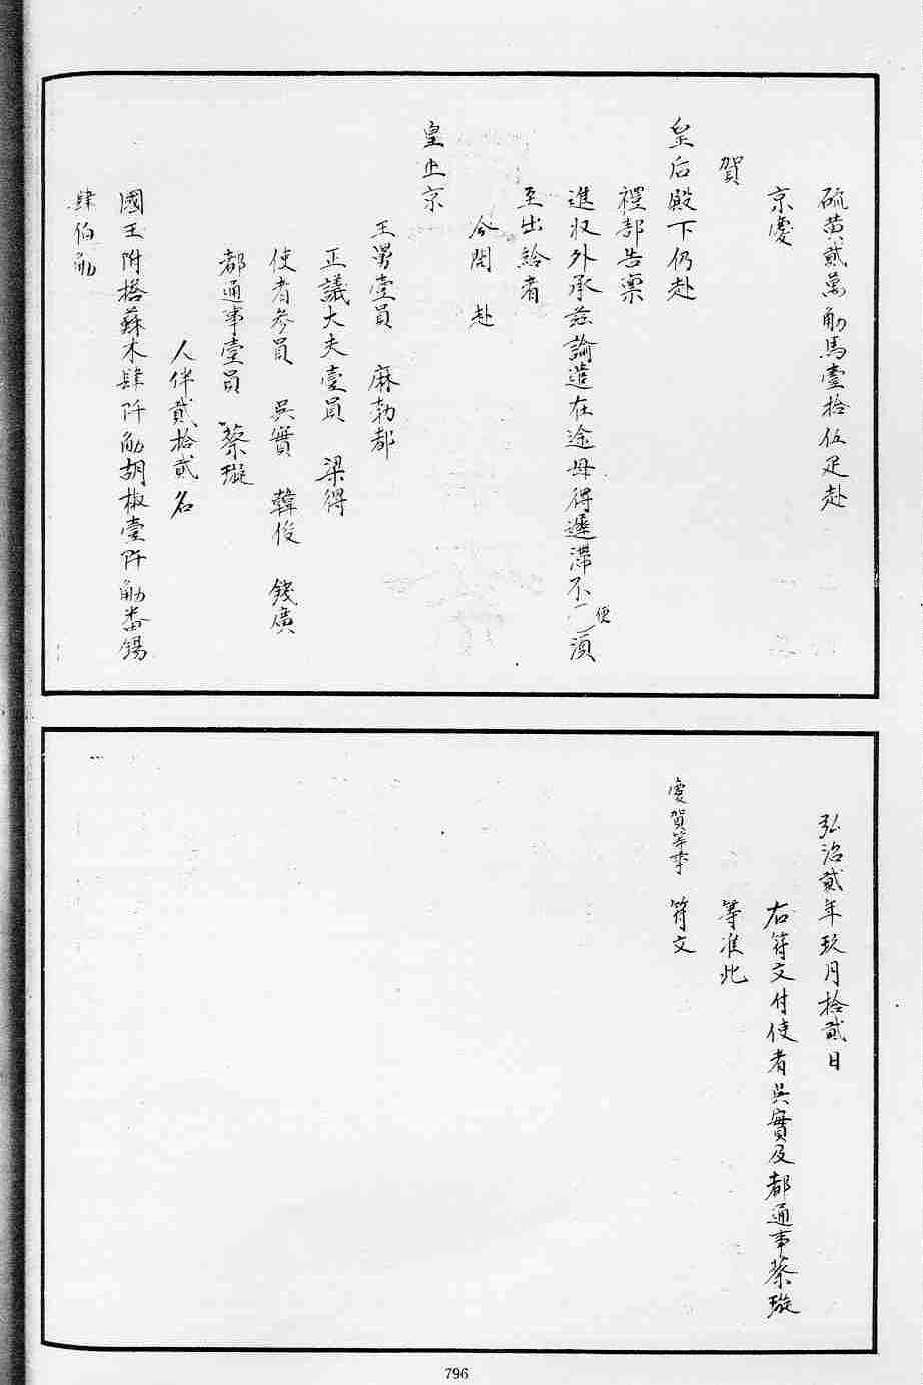 硫黄貳萬觔馬壹拾伍疋赴
京慶
賀
皇后殿下仍赴
禮部告稟
進収外承茲論遣在途毋得遲滞不便須
至出給者
今開赴
皇上京
王舅壹員 麻勃都
正議大夫壹員 梁得
使者参員 吳實 韓俊 錢廣
都通事壹員 蔡璇
人伴貳拾貳名
國王附搭蘇木肆阡觔胡椒壹阡觔番錫
肆伯觔
弘治貳年玖月拾貳日
右符文付使者吳實及都通事蔡璇
等准此
慶賀等事 符文
796